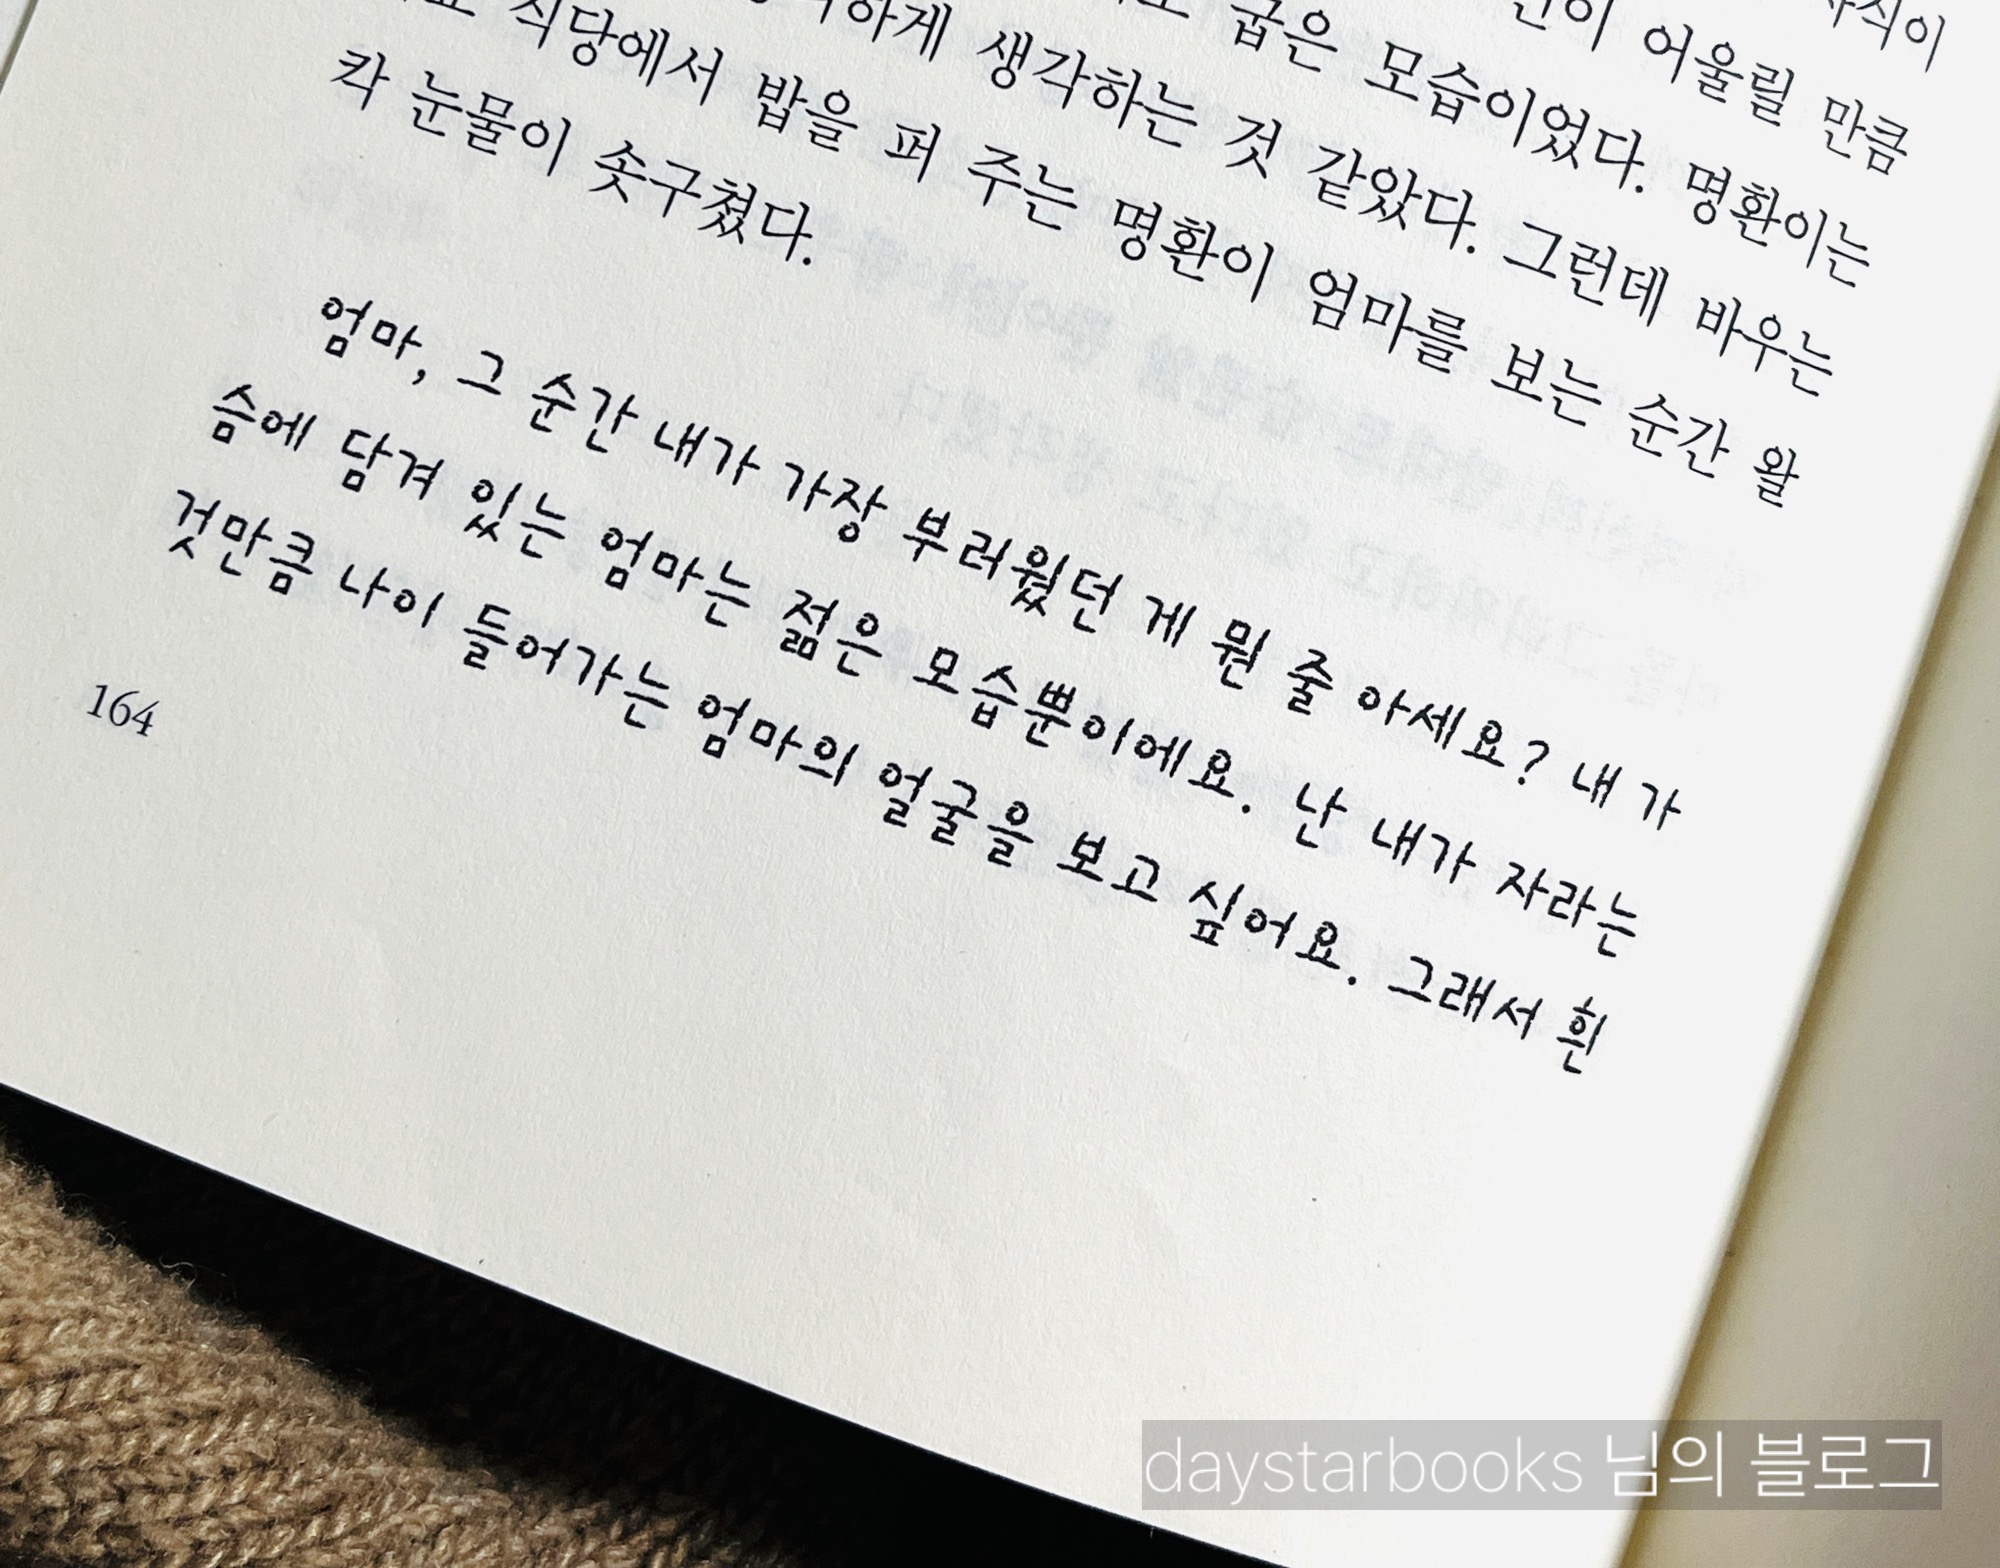 어울릴 만큼
굽은 모습이었다. 명환이는
하게 생각하는 것 같았다. 그런데 바우는
식당에서 밥을 퍼 주는 명환이 엄마를 보는 순간 왈
칵 눈물이 솟구쳤다.
엄마, 그 순간 내가 가장 부러웠던 게 뭔 줄 아세요? 내 가
슴에 담겨 있는 엄마는 젊은 모습뿐이에요. 난 내가 자라는
것만큼 나이 들어가는 엄마의 얼굴을 보고 싶어요. 그래서 흰
164
daystarbooks 님의 블로그